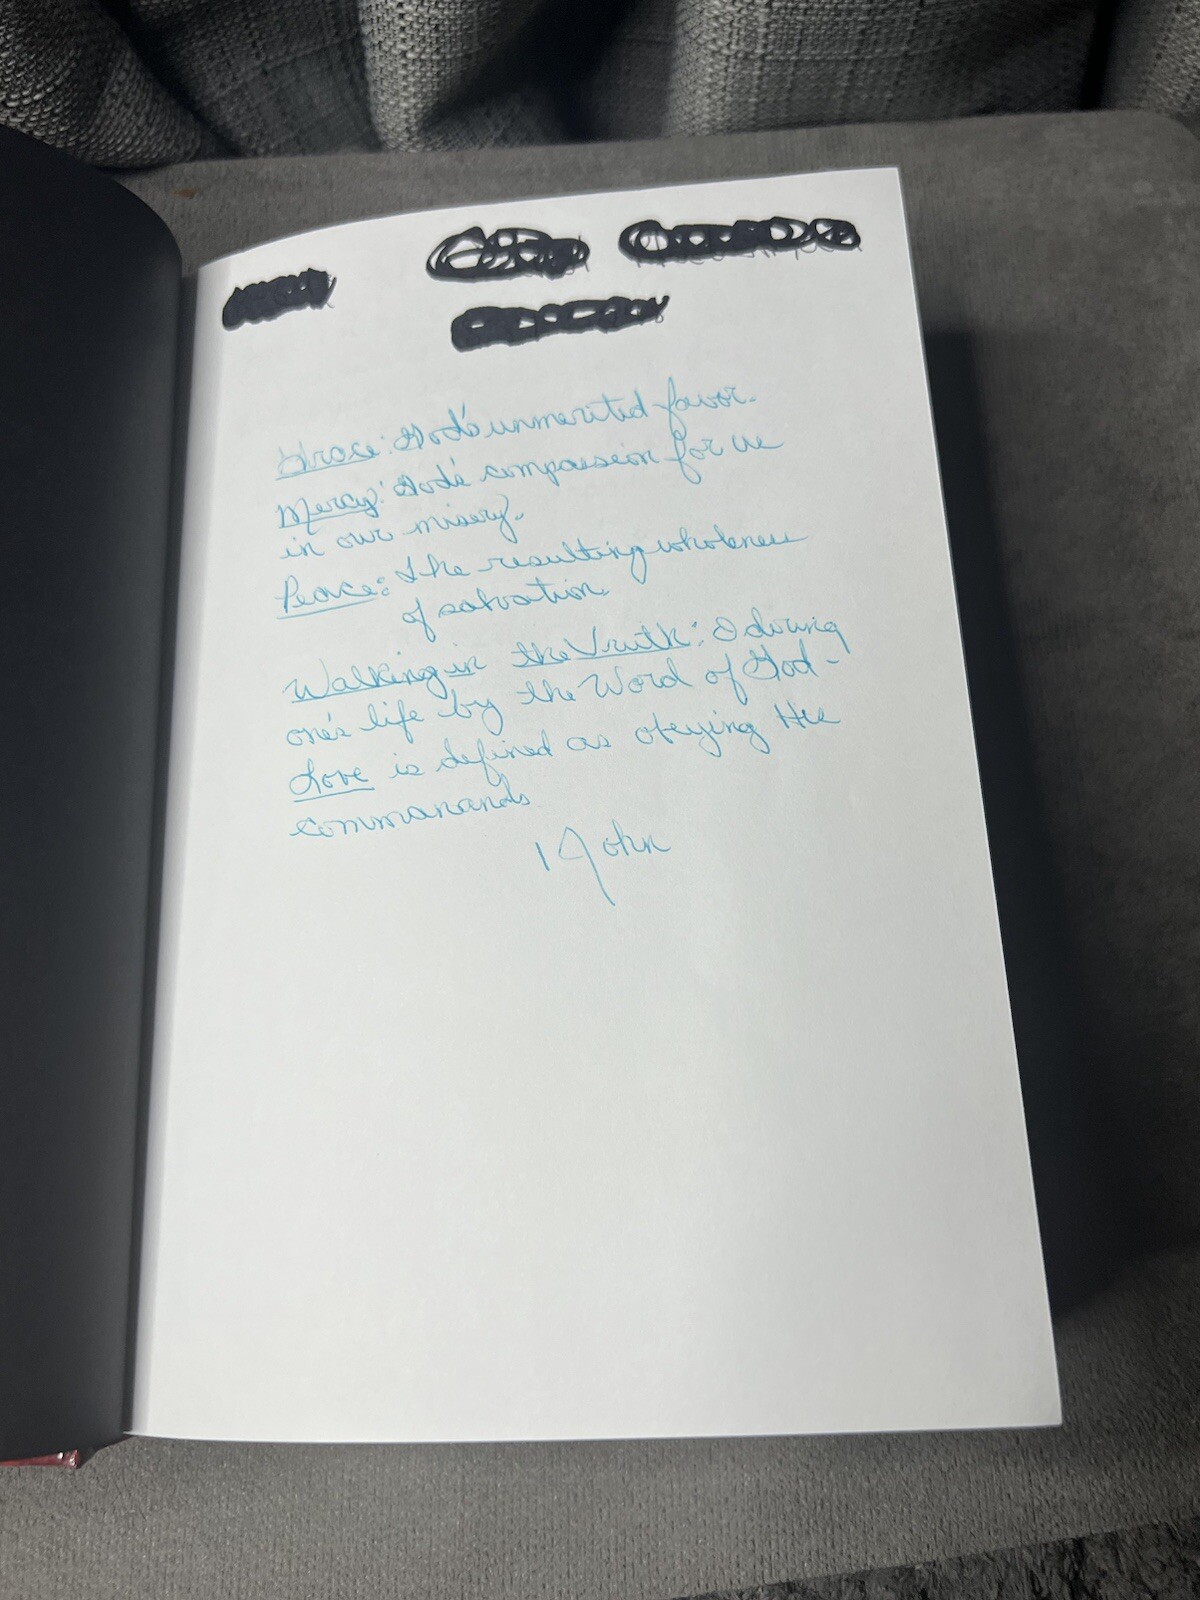 Grace: God's unmerited favor.
Mercy: God's compassion for us
in our misery.
Peace: The resulting wholeness
of salvation.
Walking in the Truth: living
one's life by the Word of God-
Love is defined as obeying His
commanands
1 John